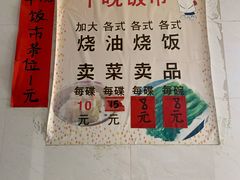 午晚饭市
加大 各式 各式 各式
烧 油 烧 饭
卖 菜 卖 品
每碟 每碟 每碟 每碗
10 15 8 8
元 元 元 元
饭市茶位1元